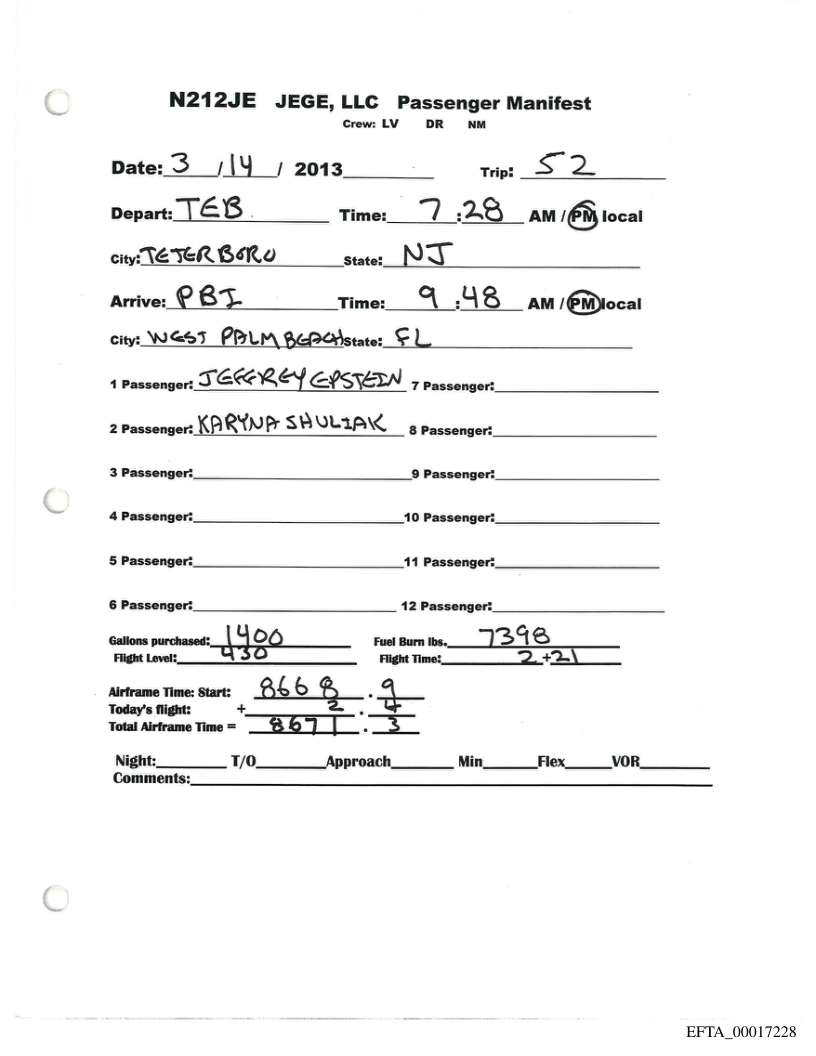 N212JE JEGE, LLC Passenger Manifest
Crew: LV DR NM
Date: 3 / 14 / 2013 Trip: 52
Depart: TEB Time: 7 : 28 AM / PM local
City: TETERBORO State: NJ
Arrive: PBI Time: 9 : 48 AM / PM local
City: WEST PALM BEACH State: FL
1 Passenger: JEFFREY EPSTEIN 7 Passenger:
2 Passenger: KARYNA SHULIAK 8 Passenger:
3 Passenger: 9 Passenger:
4 Passenger: 10 Passenger:
5 Passenger: 11 Passenger:
6 Passenger: 12 Passenger:
Gallons purchased: 1400 Fuel Burn lbs. 7398
Flight Level: 430 Flight Time: 2+21
Airframe Time: Start: 8668 . 9
Today's flight: + 2 . 4
Total Airframe Time = 8671 . 3
Night: T/O Approach Min Flex VOR
Comments:
EFTA_00017228